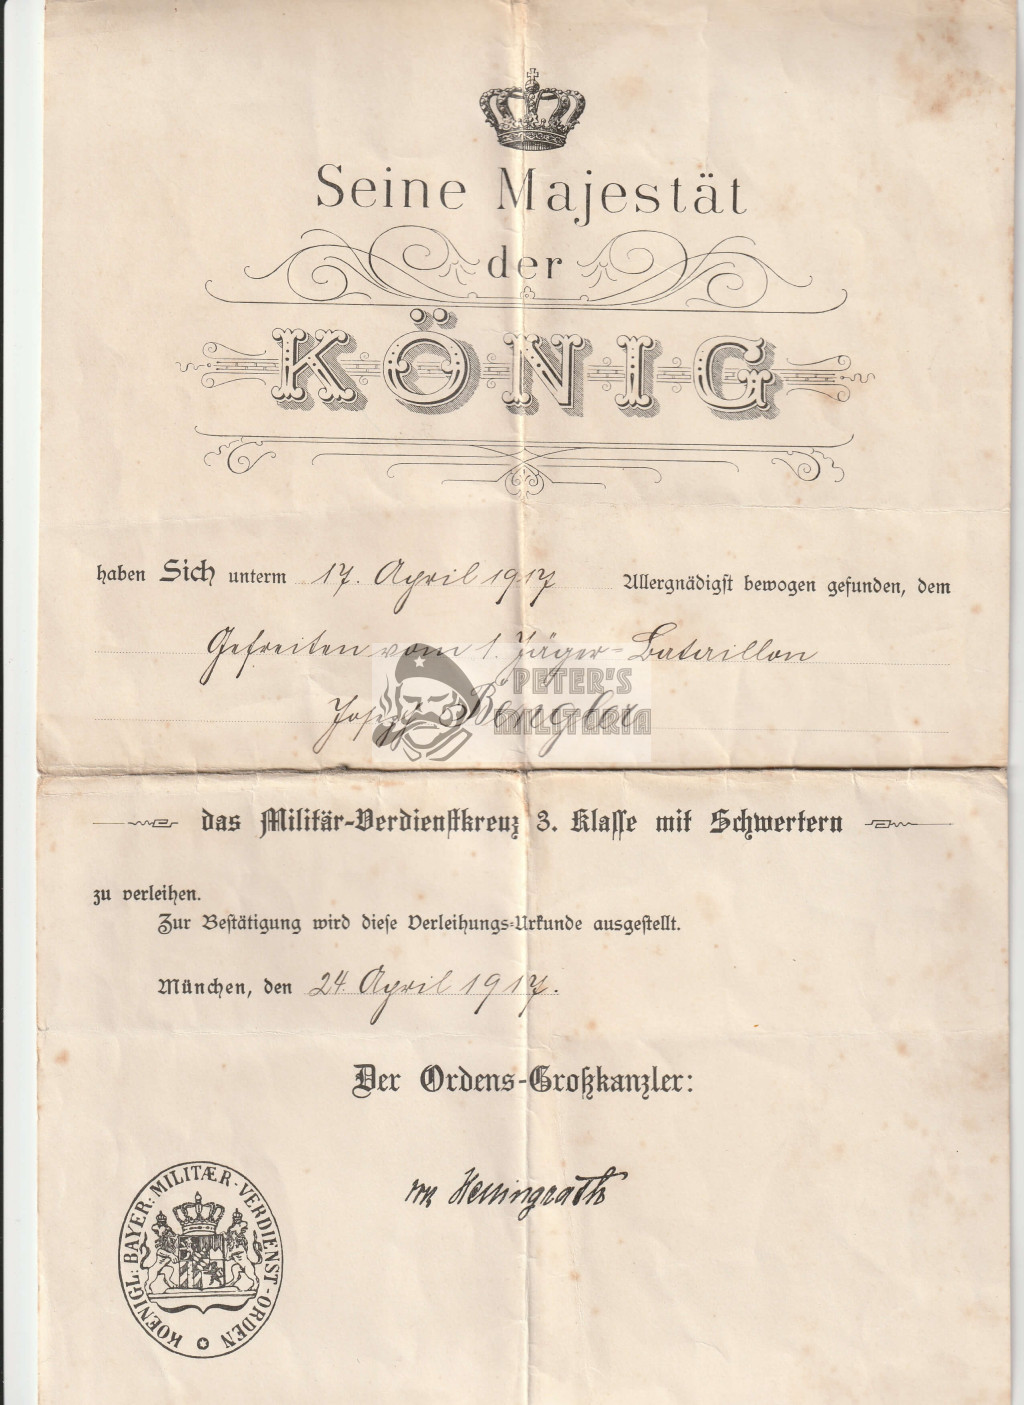 Seine Majestät
der
KÖNIG
haben Sich unterm 17. April 1917 Allergnädigst bewogen gefunden, dem
Gefreiten vom 1. Jäger-Bataillon
Josef Bengler
PETER'S
MILITARIA
das Militär-Verdienstkreuz 3. Klasse mit Schwertern
zu verleihen.
Zur Bestätigung wird diese Verleihungs-Urkunde ausgestellt.
München, den 24. April 1917.
Der Ordens-Großkanzler:
KOENIGL: BAYER: MILITÆR-VERDIENST-ORDEN